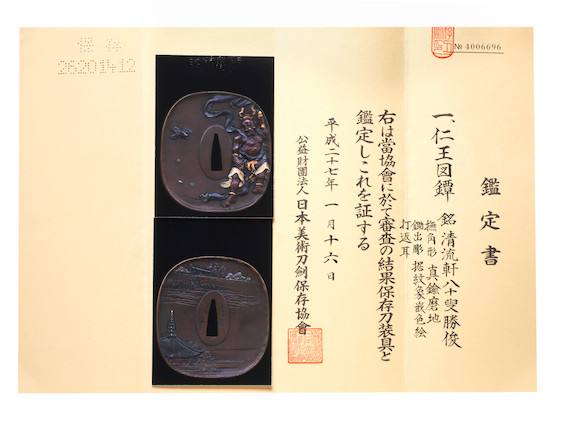 № 4006696
鑑定書
一、仁王図鐔 銘 清流軒八十叟勝俊
撫角形 真鍮磨地
鋤出彫 据紋象嵌色絵
打返耳
右は當協會に於て審査の結果保存刀装具と
鑑定しこれを証する
平成二十七年 一月十六日
公益財團法人 日本美術刀劍保存協會
保存
26201412